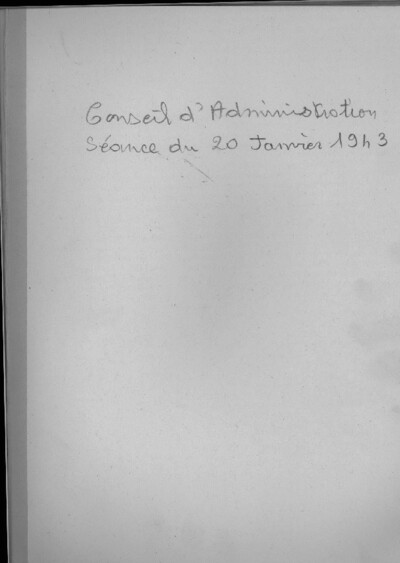 Conseil d'Administration
Séance du 20 Janvier 1943